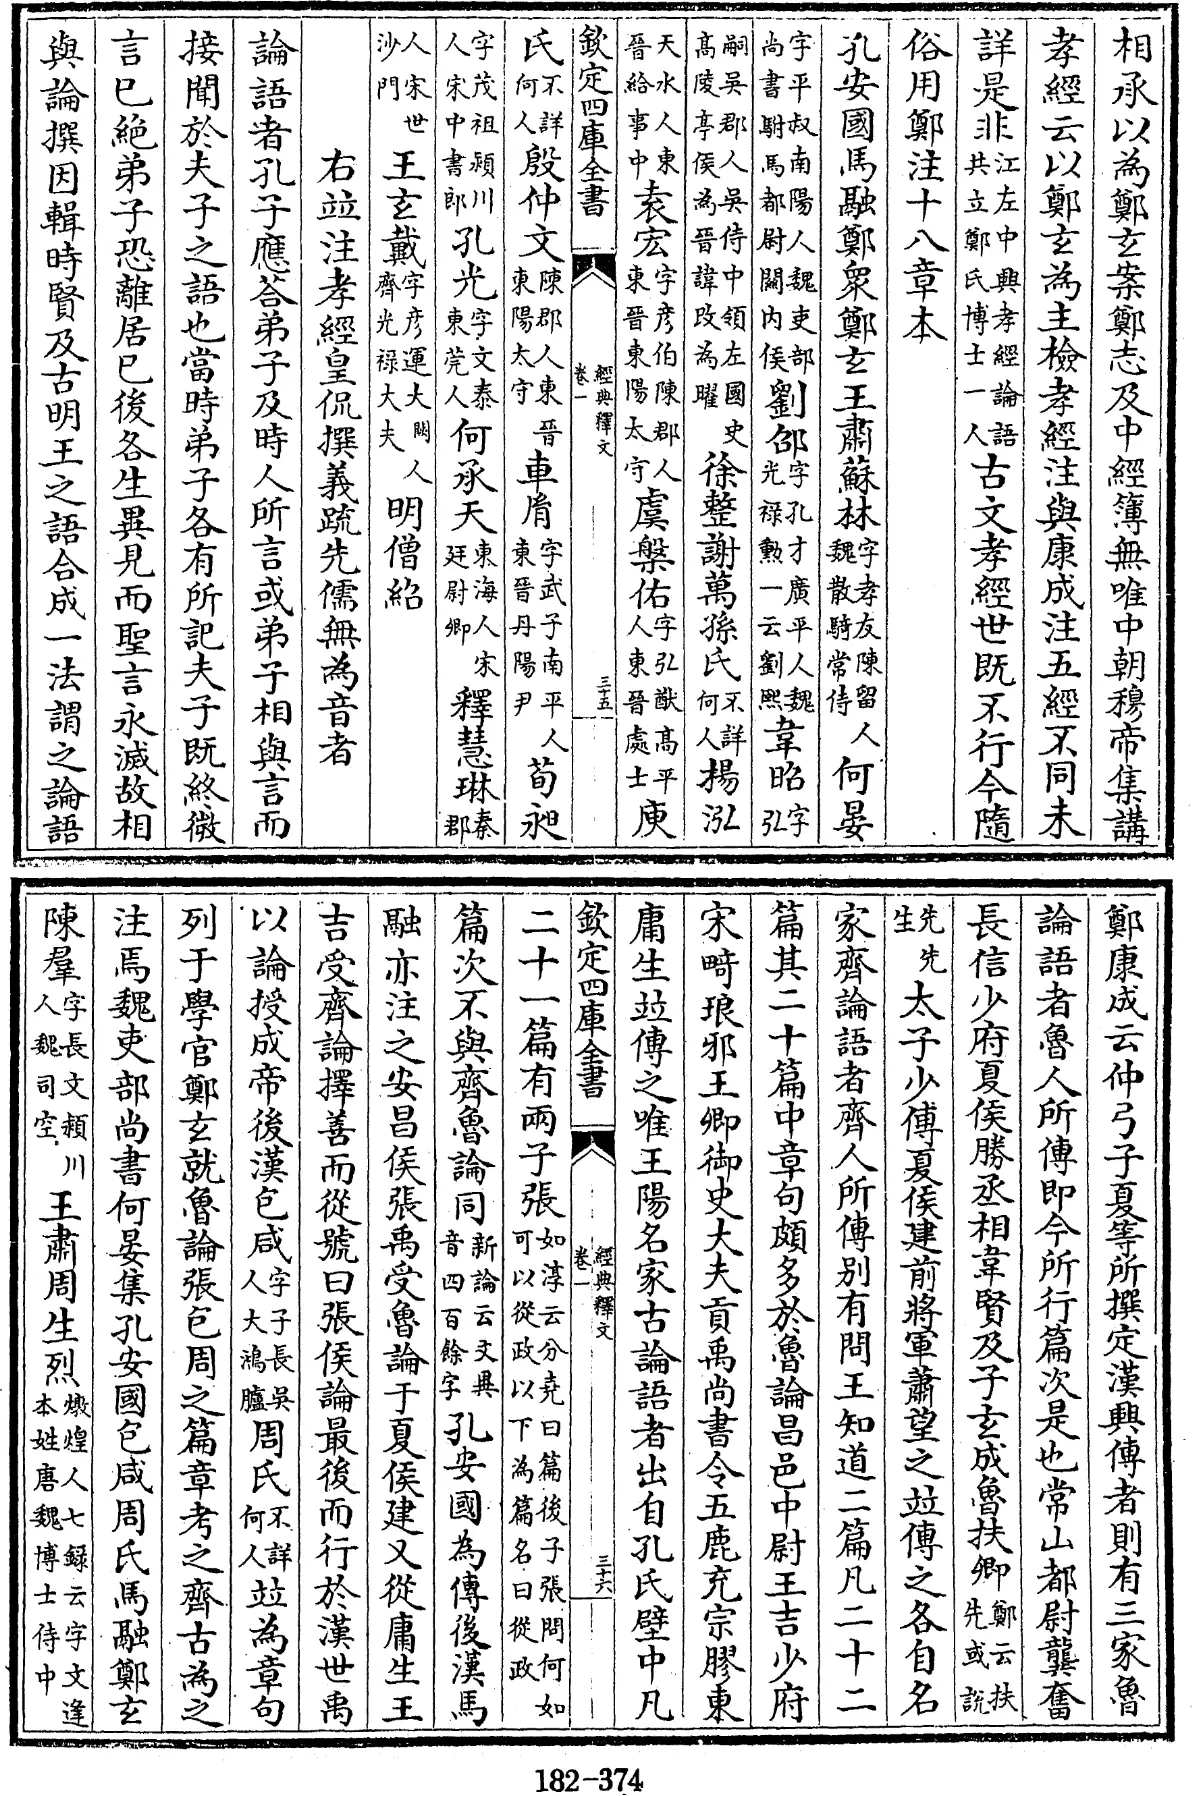 相承以為鄭玄案鄭志及中經簿無唯中朝穆帝集講
孝經云以鄭玄為主檢孝經注與康成注五經不同未
詳是非江左中興孝經論語共立鄭氏博士一人古文孝經世既不行今隨
俗用鄭注十八章本
孔安國馬融鄭衆鄭玄王肅蘇林字孝友陳留人魏散騎常侍何晏
字平叔南陽人魏吏部尚書駙馬都尉關内侯劉邵字孔才廣平人魏光祿勲一云劉熙韋昭字弘
嗣吳郡人吳侍中領左國史髙陵亭侯為晉諱改為曜徐整謝萬孫氏不詳何人楊泓
天水人東晉給事中袁宏字彦伯陳郡人東晉東陽太守虞槃佑字弘猷髙平人東晉處士庾
欽定四庫全書 經典釋文 卷一 三十五
氏不詳何人殷仲文陳郡人東晉東陽太守車胤字武子南平人東晉丹陽尹荀昶
字茂祖潁川人宋中書郎孔光字文泰東莞人何承天東海人宋廷尉卿釋慧琳秦郡
人宋世沙門王玄戴字彦運大闕人齊光祿大夫明僧紹
右竝注孝經皇侃撰義疏先儒無為音者
論語者孔子應荅弟子及時人所言或弟子相與言而
接聞於夫子之語也當時弟子各有所記夫子既終微
言已絶弟子恐離居已後各生異見而聖言永滅故相
與論撰因輯時賢及古明王之語合成一法謂之論語
鄭康成云仲弓子夏等所撰定漢興傳者則有三家魯
論語者魯人所傳即今所行篇次是也常山都尉龔奮
長信少府夏侯勝丞相韋賢及子玄成魯扶卿鄭云扶先或説
先先生太子少傅夏侯建前將軍蕭望之竝傳之各自名
家齊論語者齊人所傳别有問王知道二篇凡二十二
篇其二十篇中章句頗多於魯論昌邑中尉王吉少府
宋畸琅邪王卿御史大夫貢禹尚書令五鹿充宗膠東
庸生竝傳之唯王陽名家古論語者出自孔氏壁中凡
欽定四庫全書 經典釋文 卷一 三十六
二十一篇有兩子張如淳云分堯曰篇後子張問何如可以從政以下為篇名曰從政
篇次不與齊魯論同新論云文異音四百餘字孔安國為傳後漢馬
融亦注之安昌侯張禹受魯論于夏侯建又從庸生王
吉受齊論擇善而從號曰張侯論最後而行於漢世禹
以論授成帝後漢包咸字子長吳人大鴻臚周氏不詳何人竝為章句
列于學官鄭玄就魯論張包周之篇章考之齊古為之
注焉魏吏部尚書何晏集孔安國包咸周氏馬融鄭玄
陳羣字長文潁川人魏司空王肅周生烈燉煌人七録云字文逢本姓唐魏博士侍中
182-374